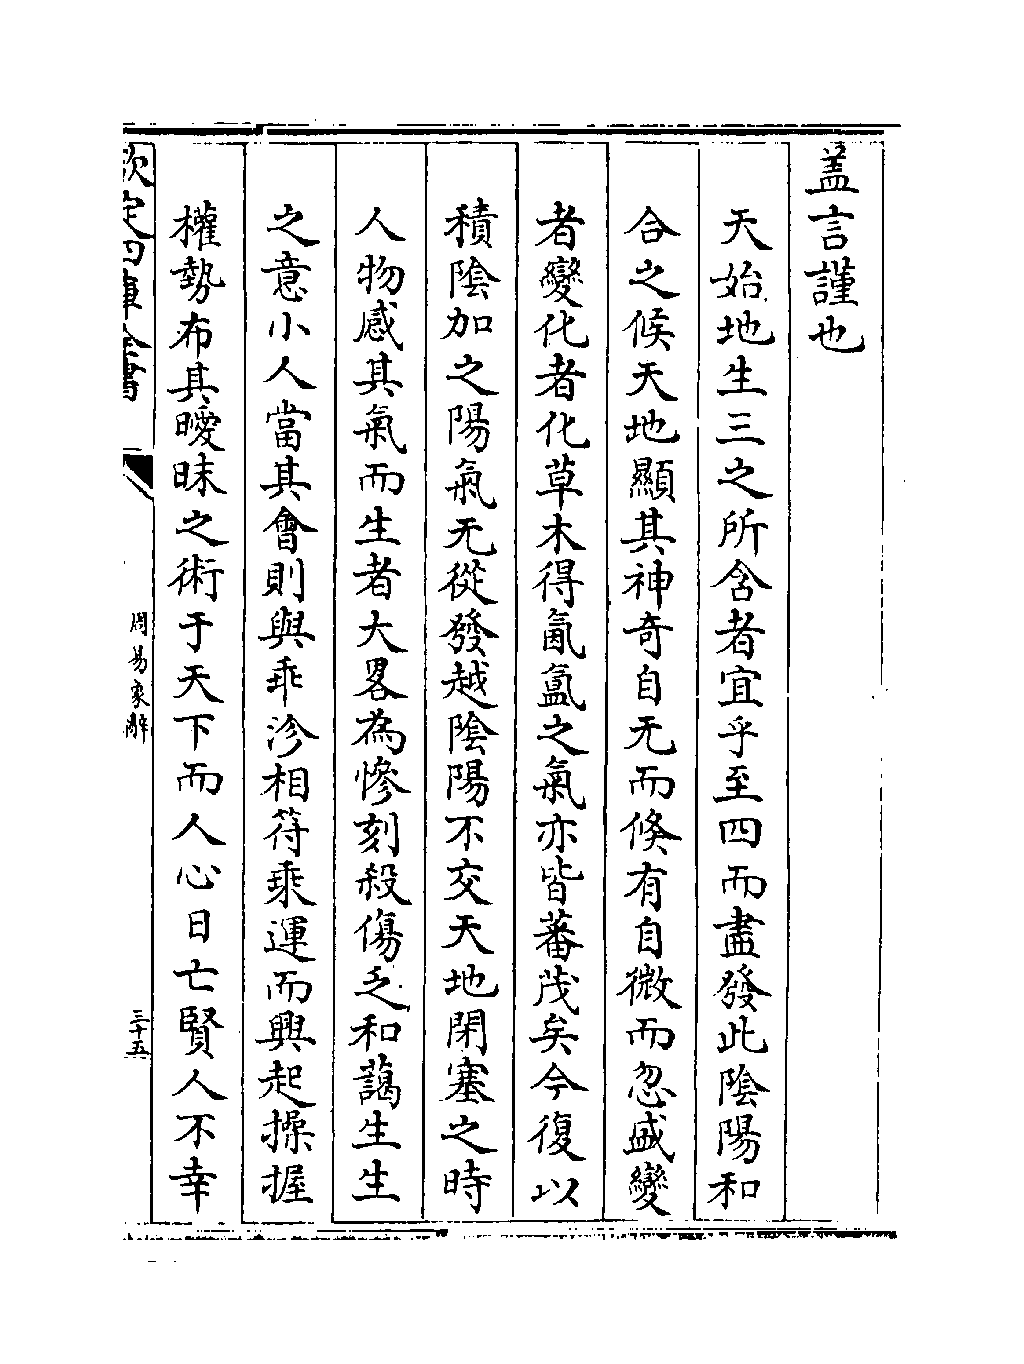 蓋言謹也
天始地生三之所含者宜乎至四而盡發此陰陽和
合之候天地顯其神奇自无而倐有自微而忽盛變
者變化者化草木得氤氲之氣亦皆蕃茂矣今復以
積陰加之陽氣无從發越陰陽不交天地閉塞之時
人物感其氣而生者大畧為慘刻殺傷乏和藹生生
之意小人當其會則與乖沴相符乗運而興起操握
權勢布其曖昧之術于天下而人心日亡賢人不幸
欽定四庫全書
周易象辭
三十五